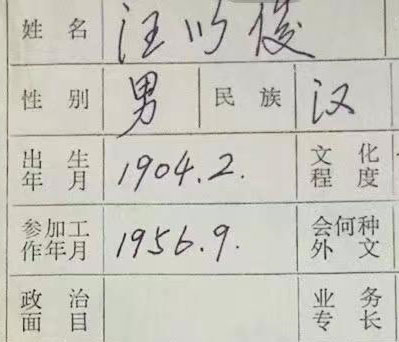 姓名 汪以俊
性别 男 民族 汉
出生年月 1904.2. 文化程度
参加工作年月 1956.9. 会何种外文
政治面目 业务专长